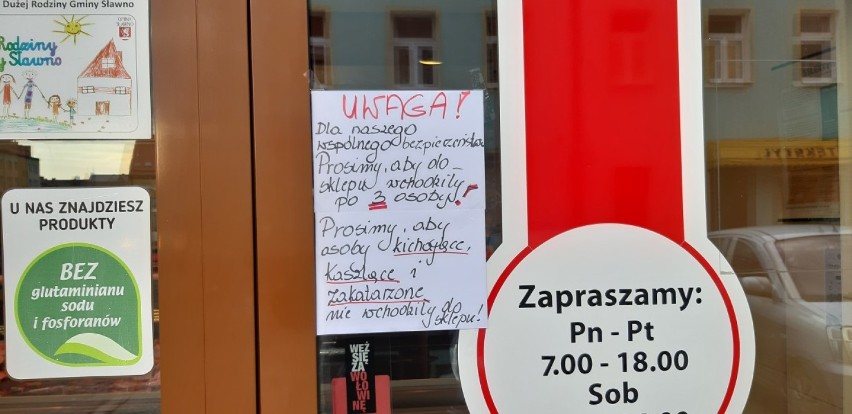 Dużej Rodziny Gminy Sławno
Rodziny
y Sławno
U NAS ZNAJDZIESZ
PRODUKTY
BEZ
glutaminianu
sodu
i fosforanów
UWAGA!
Dla naszego
wspólnego bezpieczeństwa
Prosimy, aby do
sklepu wchodziły
po 3 osoby!
Prosimy, aby
osoby kichające,
kaszlące i
zakatarzone
nie wchodziły do
sklepu!
WEŹ
SIĘ
ZA
WOŁOWI
NĘ
Zapraszamy:
Pn - Pt
7.00 - 18.00
Sob